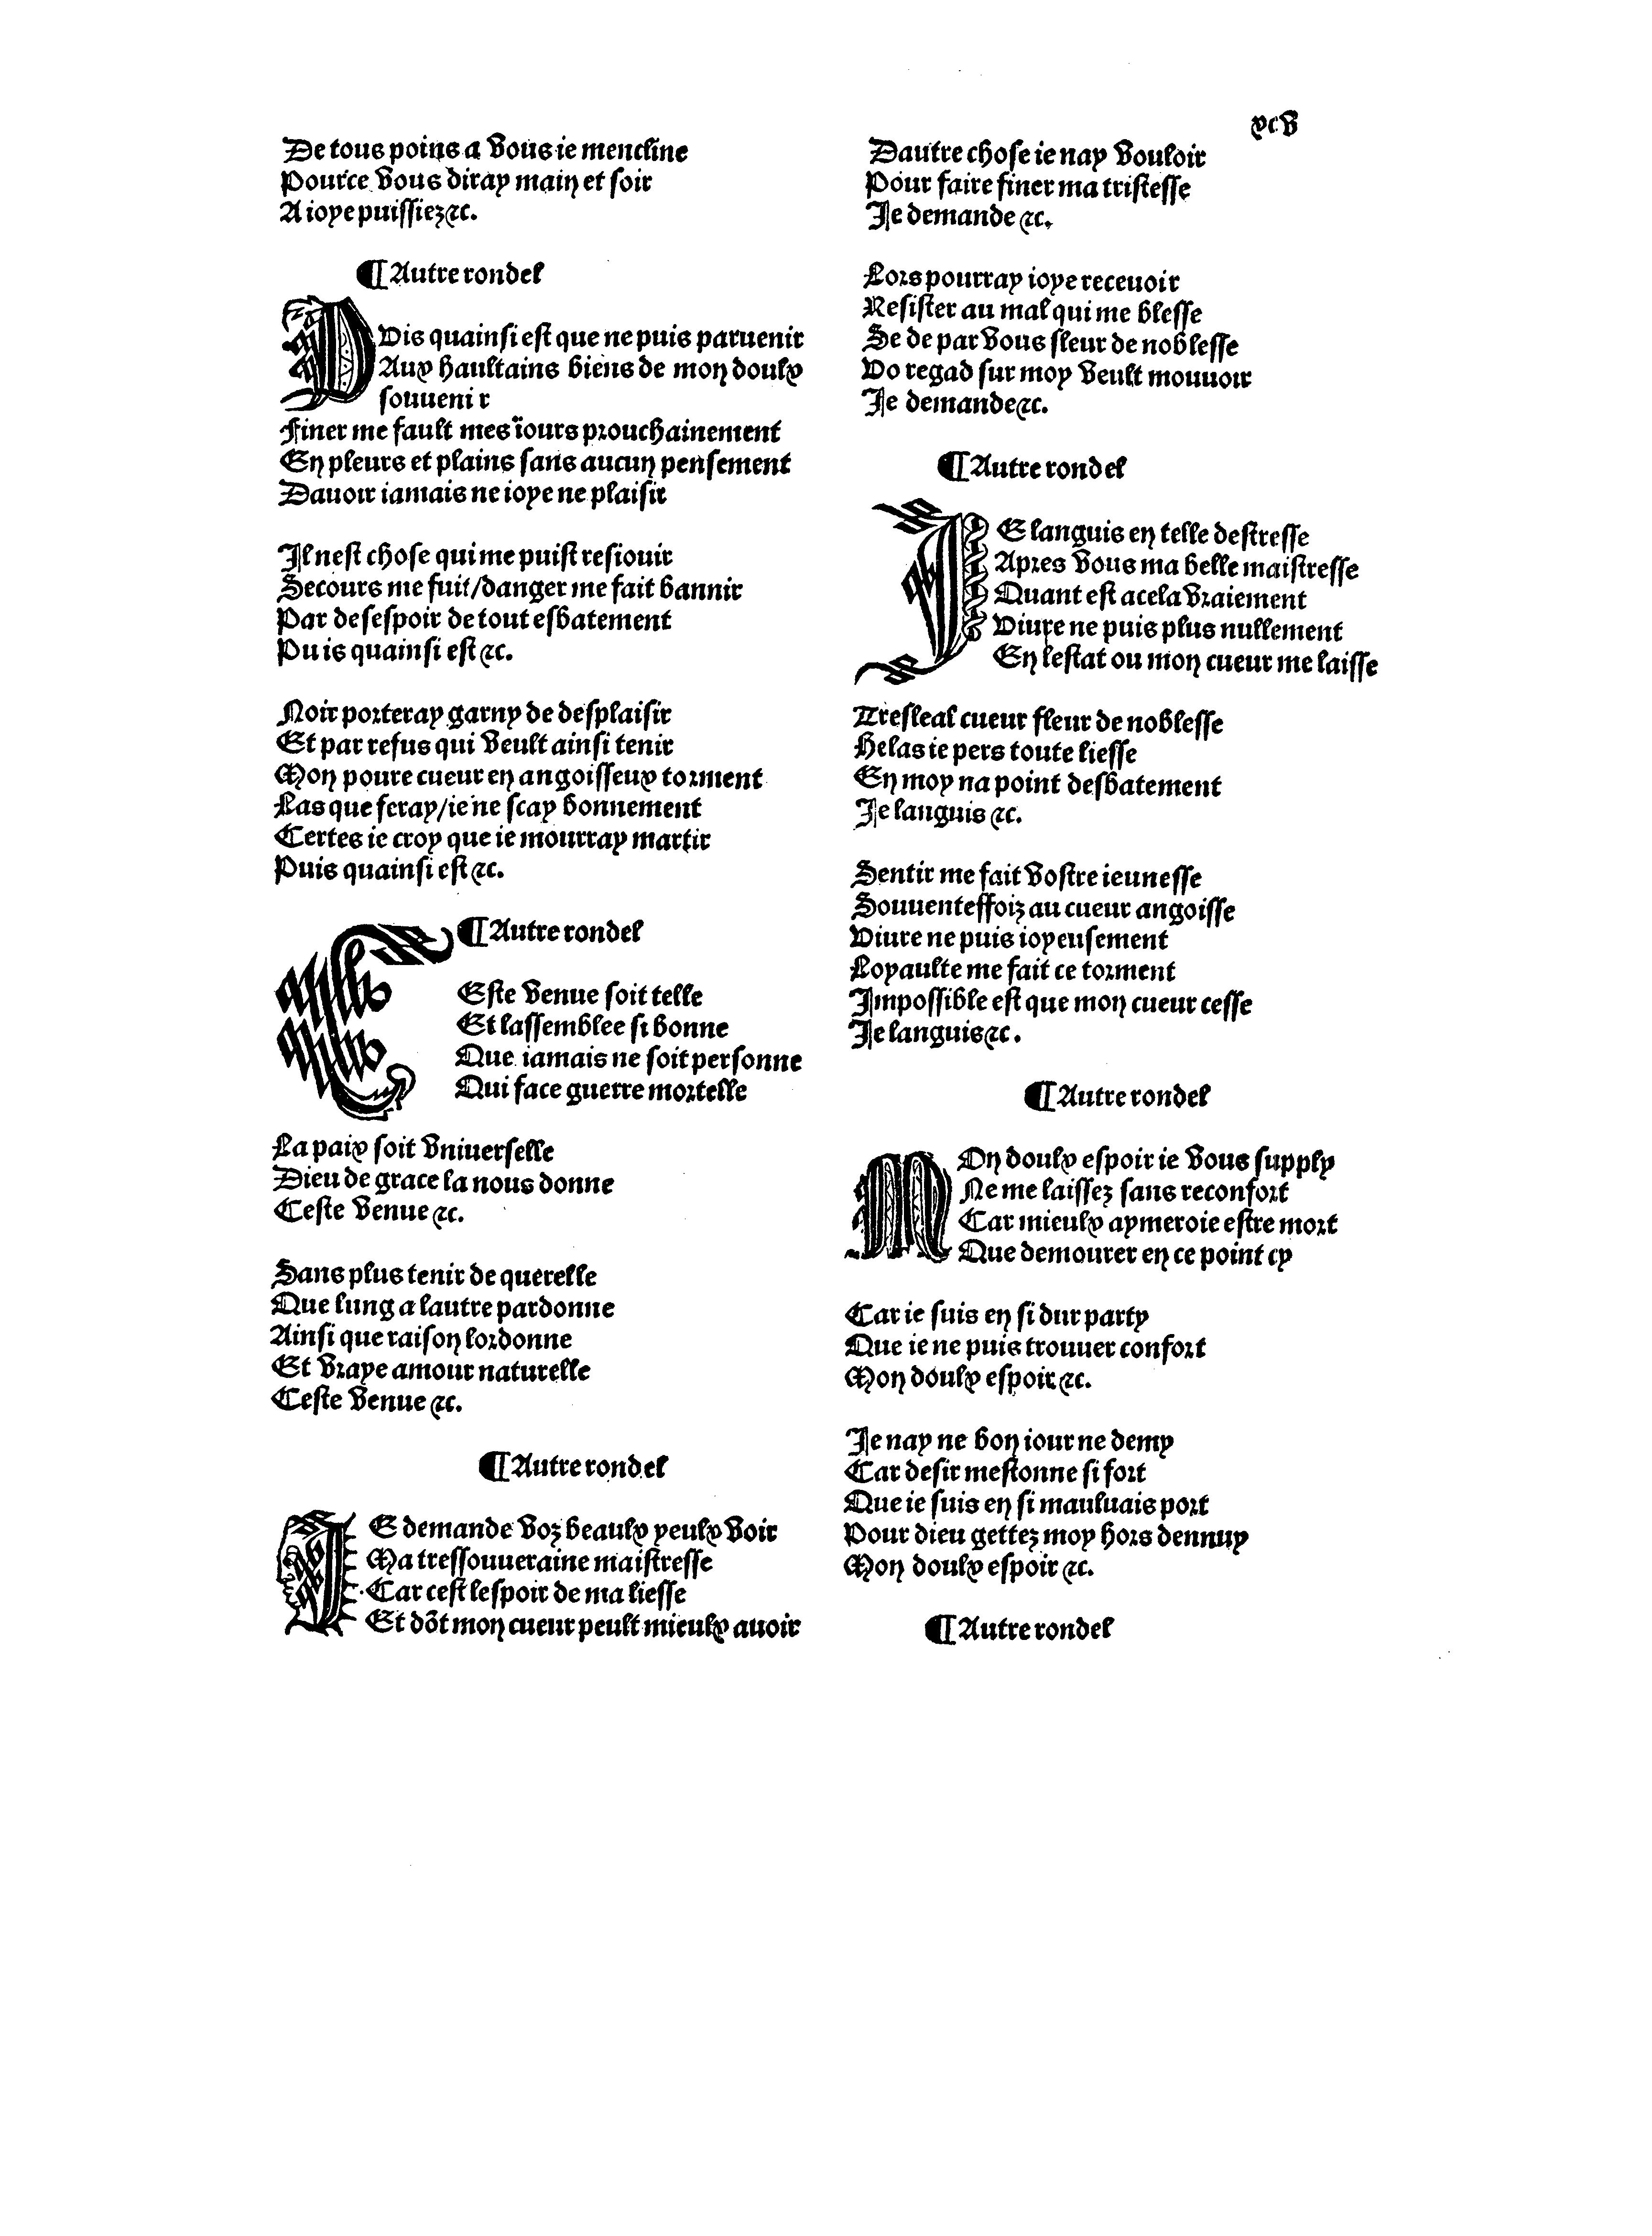 xcv
De tous poins a vous ie mencline
Pource vous diray main et soir
A ioye puissiez &c.
¶ Autre rondel
PVis quainsi est que ne puis paruenir
Aux haultains biens de mon doulx
souuenir
Finer me fault mes iours prouchainement
En pleurs et plains sans aucun pensement
Dauoir iamais ne ioye ne plaisir
Il nest chose qui me puist resiouir
Secours me fuit/danger me fait bannir
Par desespoir de tout esbatement
Puis quainsi est &c.
Noir porteray garny de desplaisir
Et par refus qui veult ainsi tenir
Mon poure cueur en angoisseux torment
Las que feray/ie ne scay bonnement
Certes ie croy que ie mourray martir
Puis quainsi est &c.
¶ Autre rondel
CEste venue soit telle
Et lassemblee si bonne
Que iamais ne soit personne
Qui face guerre mortelle
La paix soit vniuerselle
Dieu de grace la nous donne
Ceste venue &c.
Sans plus tenir de querelle
Que lung a lautre pardonne
Ainsi que raison lordonne
Et vraye amour naturelle
Ceste venue &c.
¶ Autre rondel
IE demande voz beaulx yeulx voir
Ma tressouueraine maistresse
Car cest lespoir de ma liesse
Et dõt mon cueur peult mieulx auoir
Dautre chose ie nay vouloir
Pour faire finer ma tristesse
Je demande &c.
Lors pourray ioye receuoir
Resister au mal qui me blesse
Se de par vous fleur de noblesse
Vo regad sur moy veult mouuoir
Je demande &c.
¶ Autre rondel
IE languis en telle destresse
Apres vous ma belle maistresse
Quant est acela vraiement
Viure ne puis plus nullement
En lestat ou mon cueur me laisse
Tresleal cueur fleur de noblesse
Helas ie pers toute liesse
En moy na point desbatement
Je languis &c.
Sentir me fait vostre ieunesse
Souuenteffoiz au cueur angoisse
Viure ne puis ioyeusement
Loyaulte me fait ce torment
Impossible est que mon cueur cesse
Je languis &c.
¶ Autre rondel
MOn doulx espoir ie vous supply
Ne me laissez sans reconfort
Car mieulx aymeroie estre mort
Que demourer en ce point cy
Car ie suis en si dur party
Que ie ne puis trouuer confort
Mon doulx espoir &c.
Je nay ne bon iour ne demy
Car desir mestonne si fort
Que ie suis en si mauluais port
Pour dieu gettez moy hors dennuy
Mon doulx espoir &c.
¶ Autre rondel